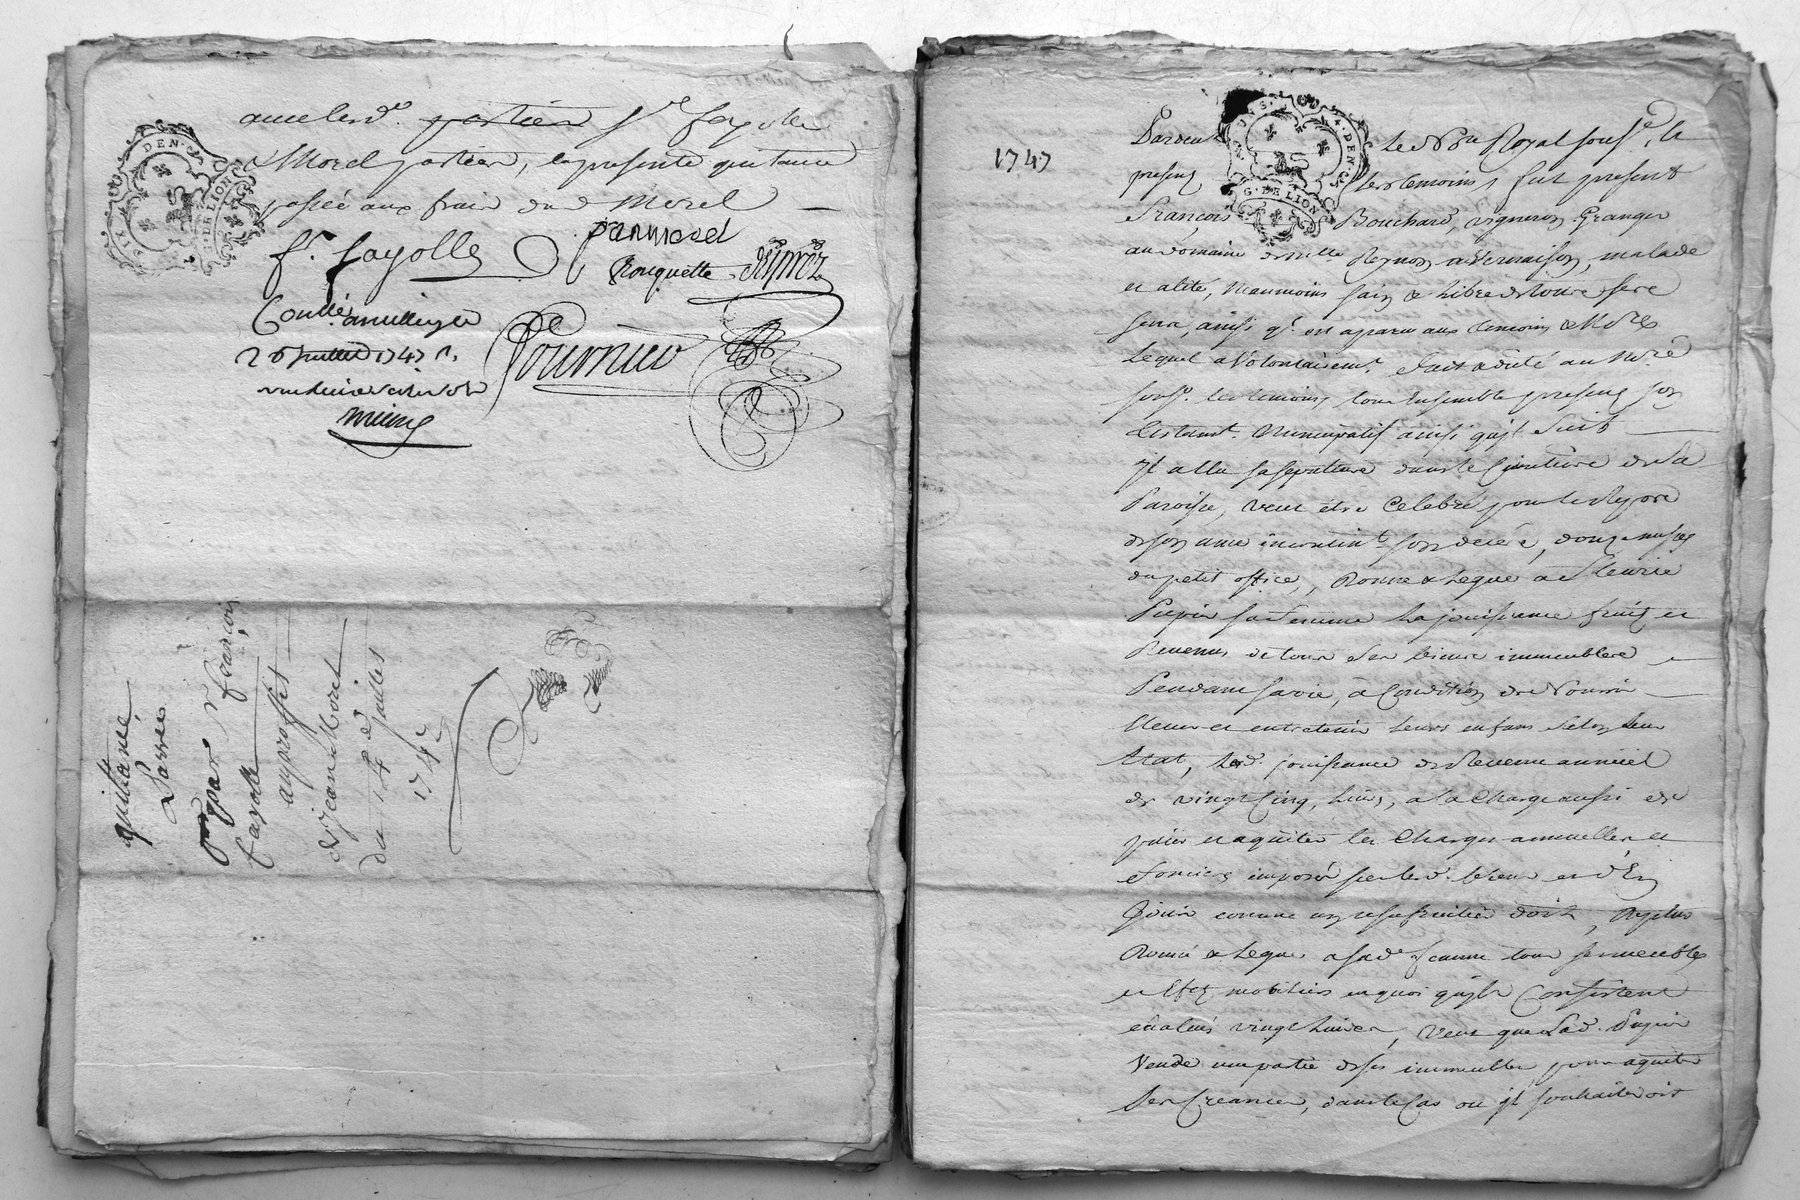 avec led. partien Sr. fayolle
& Morel partien, la presente quittance
passée aux frais dud Morel
fr. fayolle
Janmorel
Rouquette
Conllé a
26 Juillet 1747
Fournier
SIX DEN.
G. DE LION
quittance
passée
par Sr françois
fayolle
au proffit
de Jean Morel
du 14e Juillet
1747
1747
Pardevt le Nre Royal sousé, &
presens les temoins, fut present
François Bouchard, vigneron Granger
au domaine de Mlle Reynon a Vernaison, malade
et alité, neanmoins sain & libre de tous ses
sens, ainsi qu'il en a paru aux temoins & Nore
Lequel a Volontairemt. fait & dicté au Nore
sousé. les temoins tous ensemble presens son
testamt. Nuncupatif ainsi qu'il suit
Il a élu sa sepulture dans le Cimetiere de sa
Paroisse, veut étre Celebré pour le Repos
de son ame incontint. son décés, douze messes
du petit office, Donne & Legue a Fleurie
Pupin sa femme la jouissance fruits et
Revenus de tous ses biens immeubles
Pendant sa vie, a Condition de Nourrir
Elever et entretenir leurs enfans selon leur
état, lad. jouissance de Revenu annuel
de vingt Cinq Livres, a la Charge aussi de
païer et aquiter les Charges annuelles et
foncieres imposés sur lesd. biens et d'En
Jouir comme un usufruitier doit, de plus
Donne & Legue a sad. femme tous ses meubles
et Effets mobiliers en quoi qu'ils Consistent
évalués vingt Livres, veut que Lad. Pupin
Vende une partie de ses immeubles pour aquiter
Ses Creanciers, dans le Cas ou il souhaiteroit
DEN.
G. DE LION